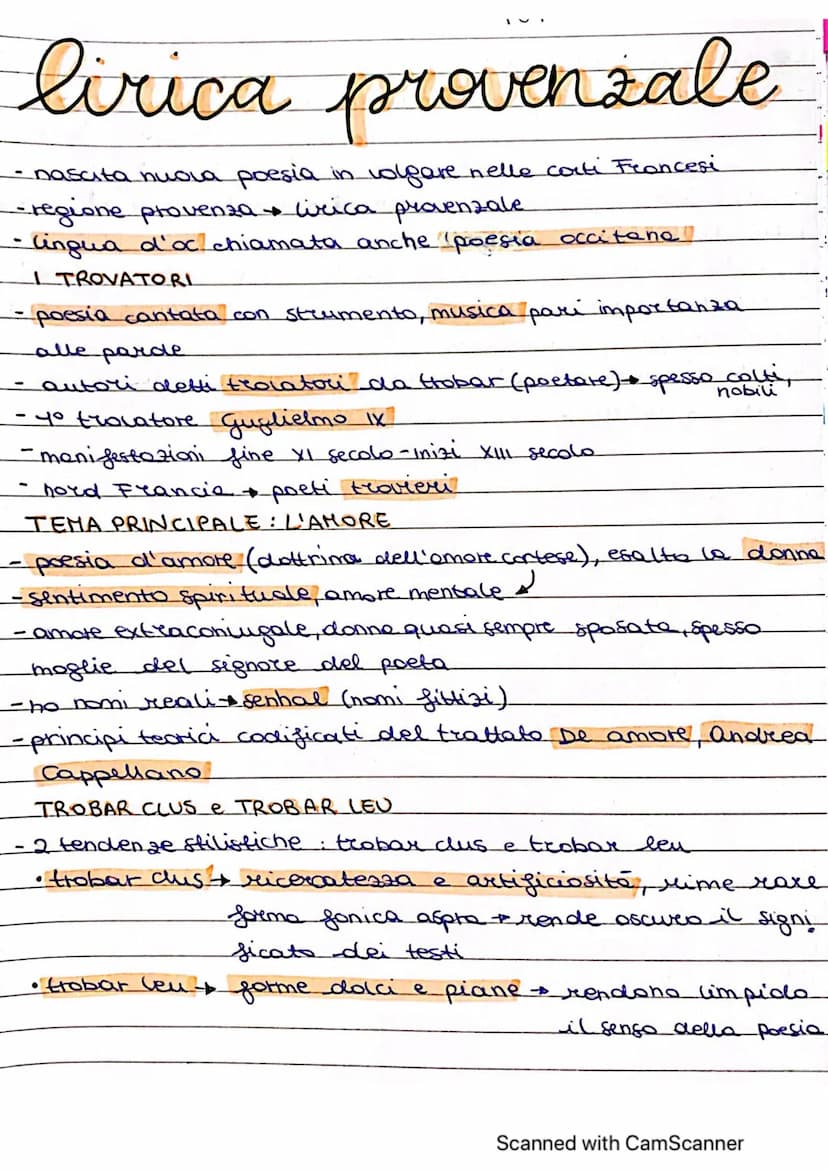 lirica provenzale
- nascita nuova poesia in volgare nelle corti Francesi
- regione provenza → lirica provenzale
- lingua d'oc chiamata anche "poesia occitana"
I TROVATORI
- poesia cantata con strumento, musica pari importanza
alle parole
- autori detti trovatori da trobar (poetare) → spesso colti,
nobili
- 1° trovatore Guglielmo IX
- manifestazioni fine XI secolo - inizi XIII secolo
- nord Francia → poeti trovieri
TEMA PRINCIPALE : L'AMORE
- poesia d'amore (dottrina dell'amore cortese), esalta la donna
- sentimento spirituale, amore mentale ↙
- amore extraconiugale, donna quasi sempre sposata, spesso
moglie del signore del poeta
- no nomi reali → senhal (nomi fittizi)
- principi teorici codificati del trattato De amore, Andrea
Cappellano
TROBAR CLUS e TROBAR LEU
- 2 tendenze stilistiche : trobar clus e trobar leu
• trobar clus → ricercatezza e artificiosità, rime rare
forma fonica aspra → rende oscuro il signi
ficato dei testi
• trobar leu → forme dolci e piane → rendono limpido
il senso della poesia
Scanned with CamScanner